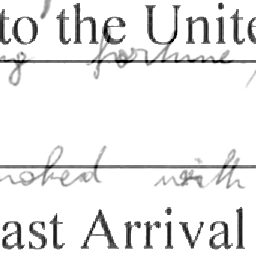 to the Unite
ng fortune,
with
ast Arrival